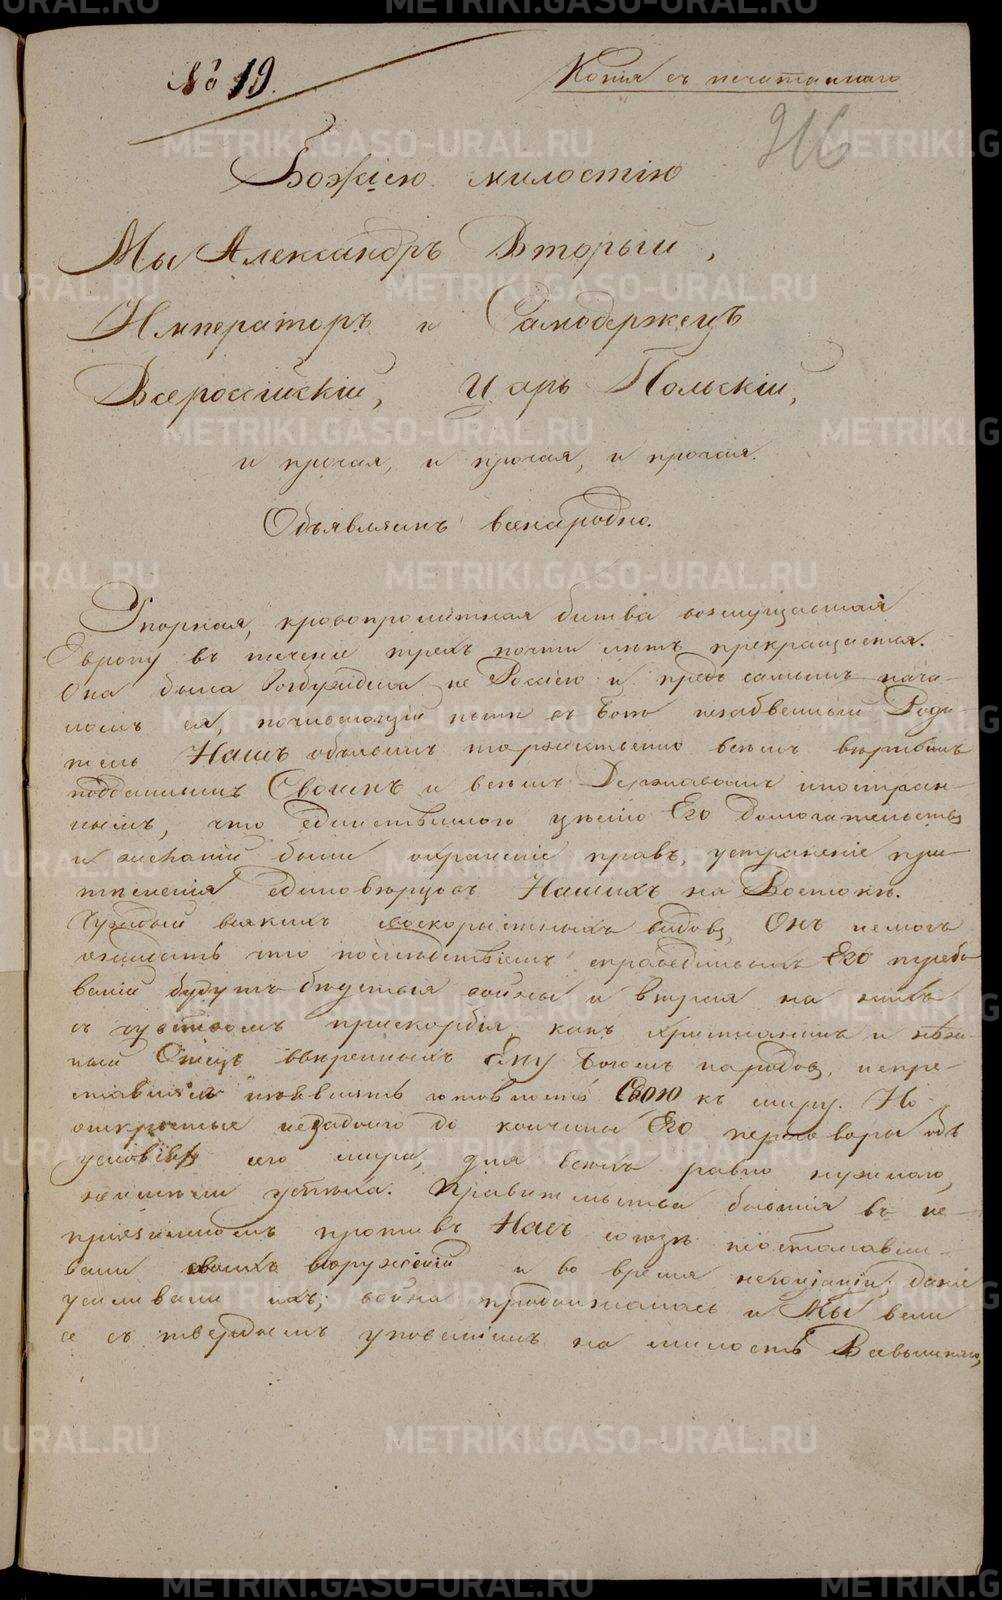 № 19.
Копія съ печатаннаго
216
Божіею милостію
Мы Александръ Вторый,
Императоръ и Самодержецъ
Всероссійскій, Царь Польскій,
и прочая, и прочая, и прочая.
Объявляемъ всенародно.
Упорная, кровопролитная битва возмущавшая
Европу въ теченіи трехъ почти лѣтъ прекращается.
Она была возбуждена не Россіею и предъ самымъ нача-
ломъ ея, почивающій нынѣ въ Богѣ незабвенный Роди-
тель Нашъ объявилъ торжественно всѣмъ вѣрнымъ
подданнымъ Своимъ и всѣмъ Державамъ иностран-
нымъ, что единственною цѣлію Его домогательствъ
и желаній были охраненіе правъ, устраненіе при-
тѣсненія единовѣрцовъ Нашихъ на Востокѣ.
Чуждый всякихъ своекорыстныхъ видовъ, Онъ немогъ
ожидать что послѣдствіемъ справедливыхъ Его требо-
ваній будутъ бѣдствія войны и взирая на нихъ
съ чувствомъ прискорбія, какъ христіанинъ и нѣж-
ный Отецъ ввѣренныхъ Ему Богомъ народовъ, непре-
ставалъ изъявлять готовность Свою къ миру. Но
открытые незадолго до кончины Его переговоры объ
условіяхъ сего мира, для всѣхъ равно нужнаго,
неимѣли успѣха. Правительства бывшія въ не-
пріязненномъ противъ Насъ союзѣ неостанавли-
вали своихъ вооруженій и во время негоціацій; даже
усиливали ихъ; война продолжалась и Мы вели
ее съ твердымъ упованіемъ на милость Всевышняго,
METRIKI.GASO-URAL.RU